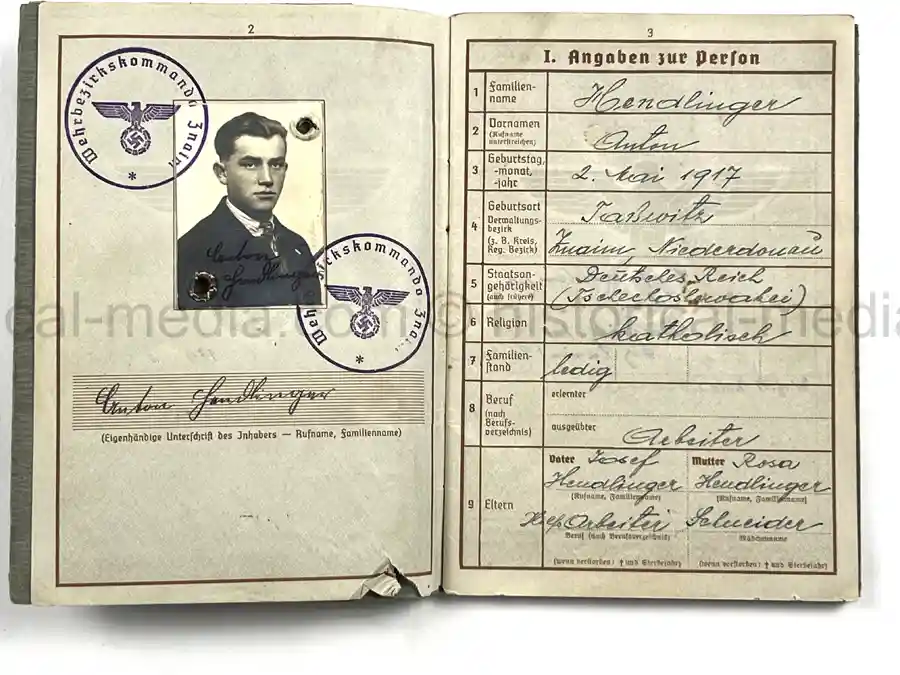 2
Wehrbezirkskommando Znaim
*
Anton
Hendlinger
Wehrbezirkskommando Znaim
*
Anton Hendlinger
(Eigenhändige Unterschrift des Inhabers — Rufname, Familienname)
3
I. Angaben zur Person
1 Familien-
name
Hendlinger
2 Vornamen
(Rufname
unterstreichen)
Anton
3 Geburtstag,
-monat,
-jahr
2. Mai 1917
4 Geburtsort
Verwaltungs-
bezirk
(z. B. Kreis,
Reg. Bezirk)
Taßwitz
Znaim, Niederdonau
5 Staatsan-
gehörigkeit
(auch frühere)
Deutsches Reich
(Tschechoslowakei)
6 Religion
katholisch
7 Familien-
stand
ledig
8 Beruf
(nach
Berufs-
verzeichnis)
erlernter
ausgeübter
Arbeiter
9 Eltern
Vater Josef
Hendlinger
(Rufname, Familienname)
Arbeiter
Beruf (nach Berufsverzeichnis)
(wenn verstorben † und Sterbejahr)
Mutter Rosa
Hendlinger
(Rufname, Familienname)
Schneider
Mädchenname
(wenn verstorben † und Sterbejahr)
cal-media.com © historical-media